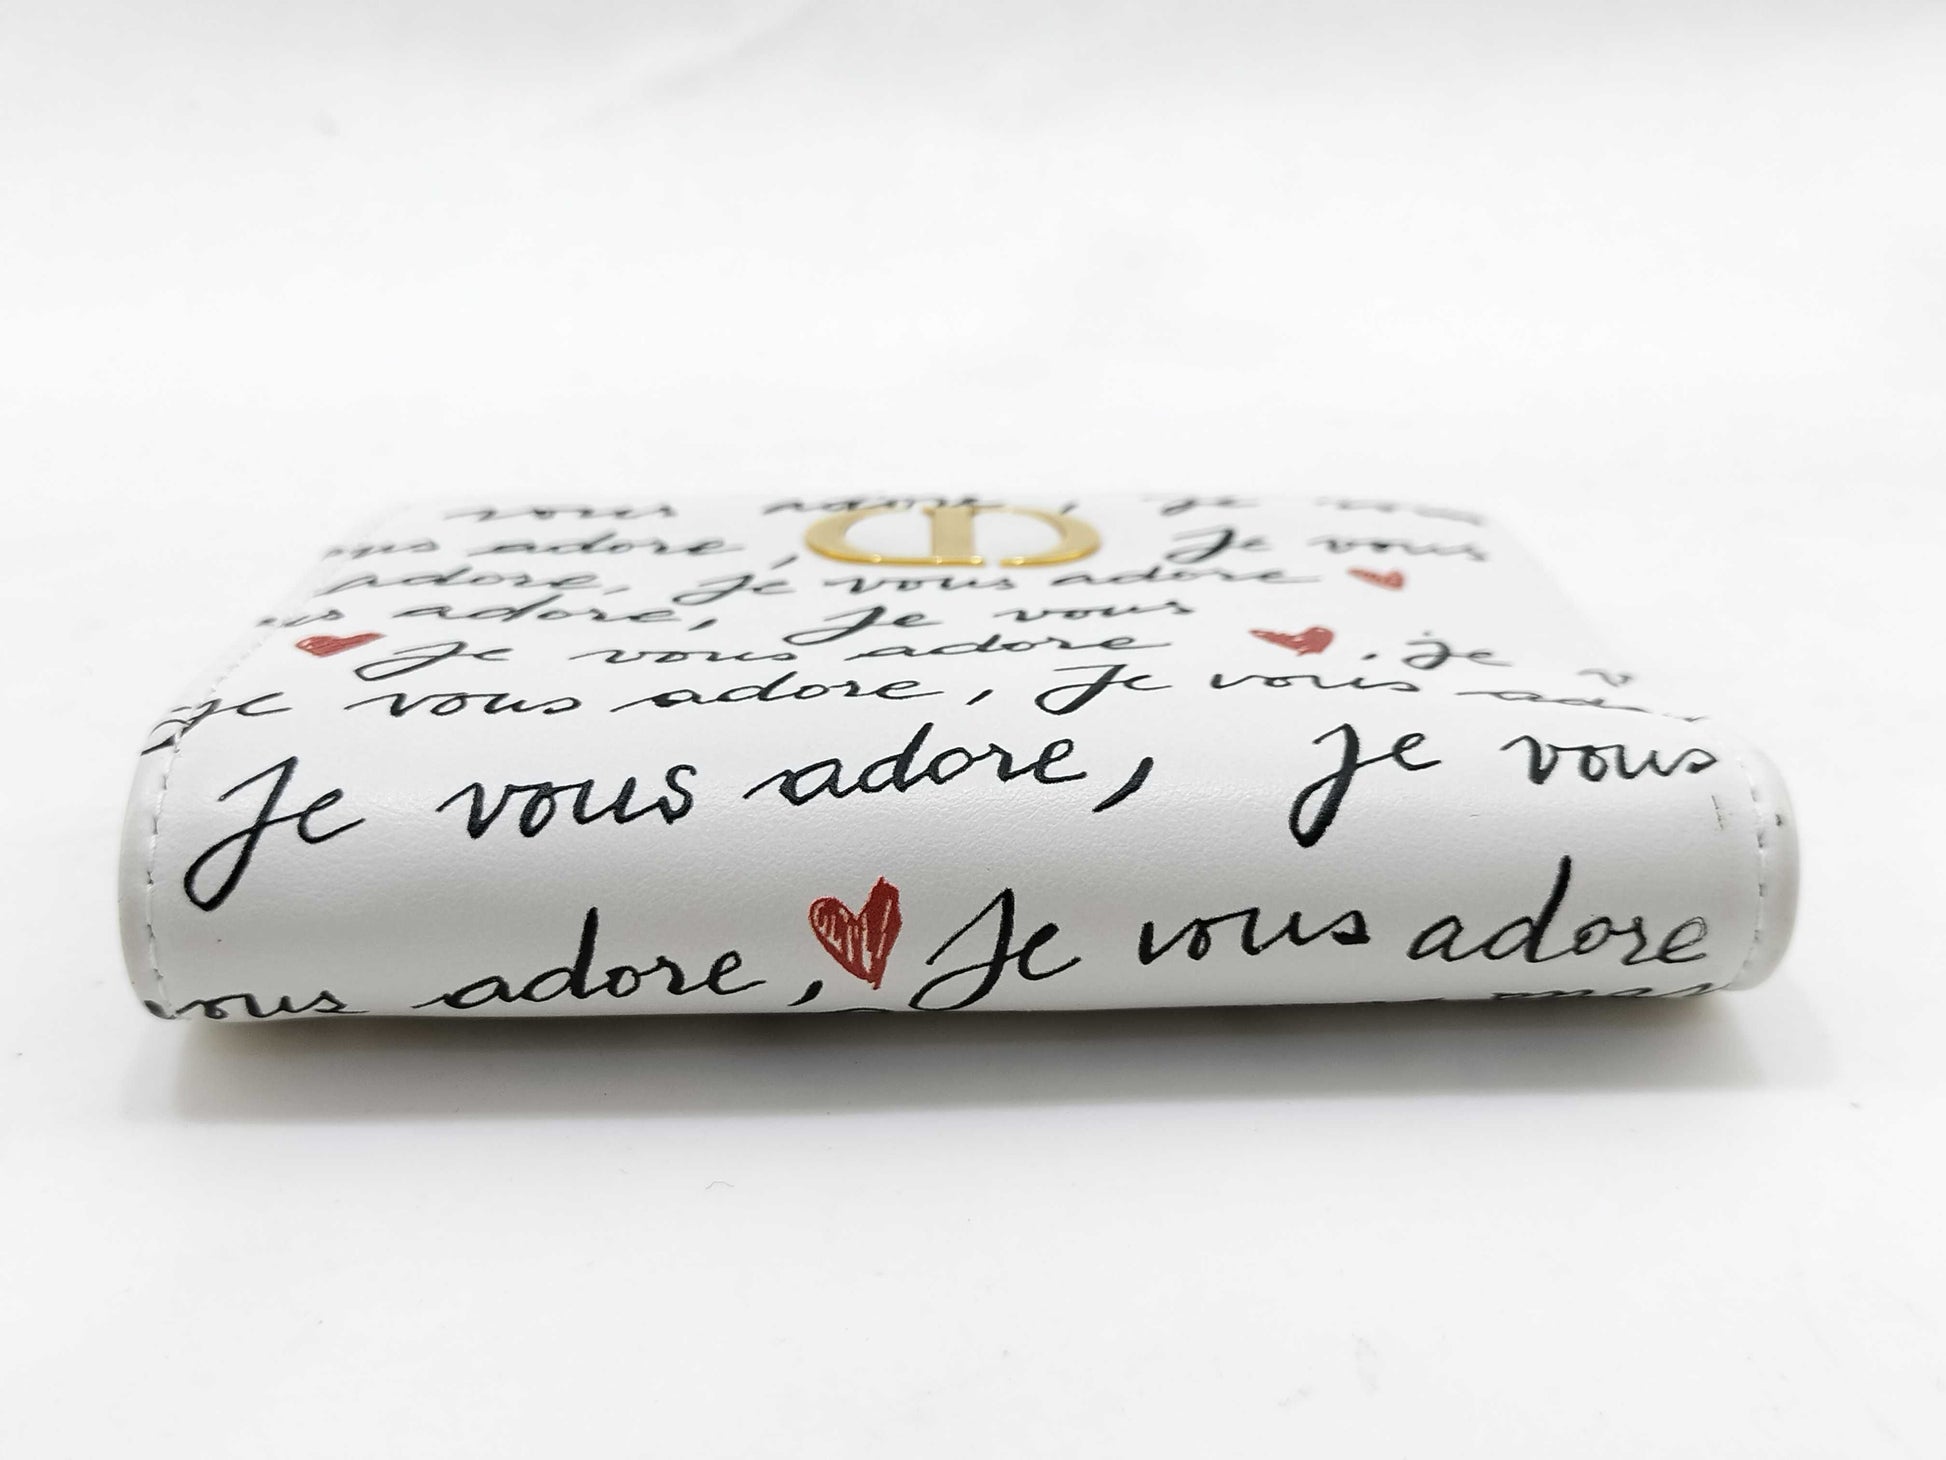 vous adore, je vous
adore, Je vous
adore, Je vous adore
adore, Je vous
Je vous adore . je
je vous adore, Je vous
Je vous adore, Je vous
adore, Je vous adore
vous